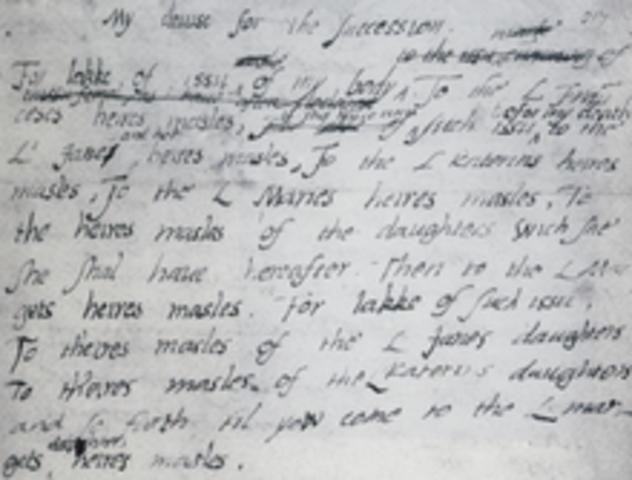 My deuise for the succession.
For lakke of issu of my body To the L Fran
ceses heires masles, if she have any such issu befor my death to the
L' Janes and her heires masles, To the L Katerins heires
masles, To the L Maries heires masles, To
the heires masles of the daughters wich she
she shal haue hereafter. Then to the L Mar
gets heires masles. For lakke of such issu,
To theires masles of the L Janes daughters
To theires masles of the L Katerins daughters
and so forth til you come to the L mar
gets daughters heires masles.